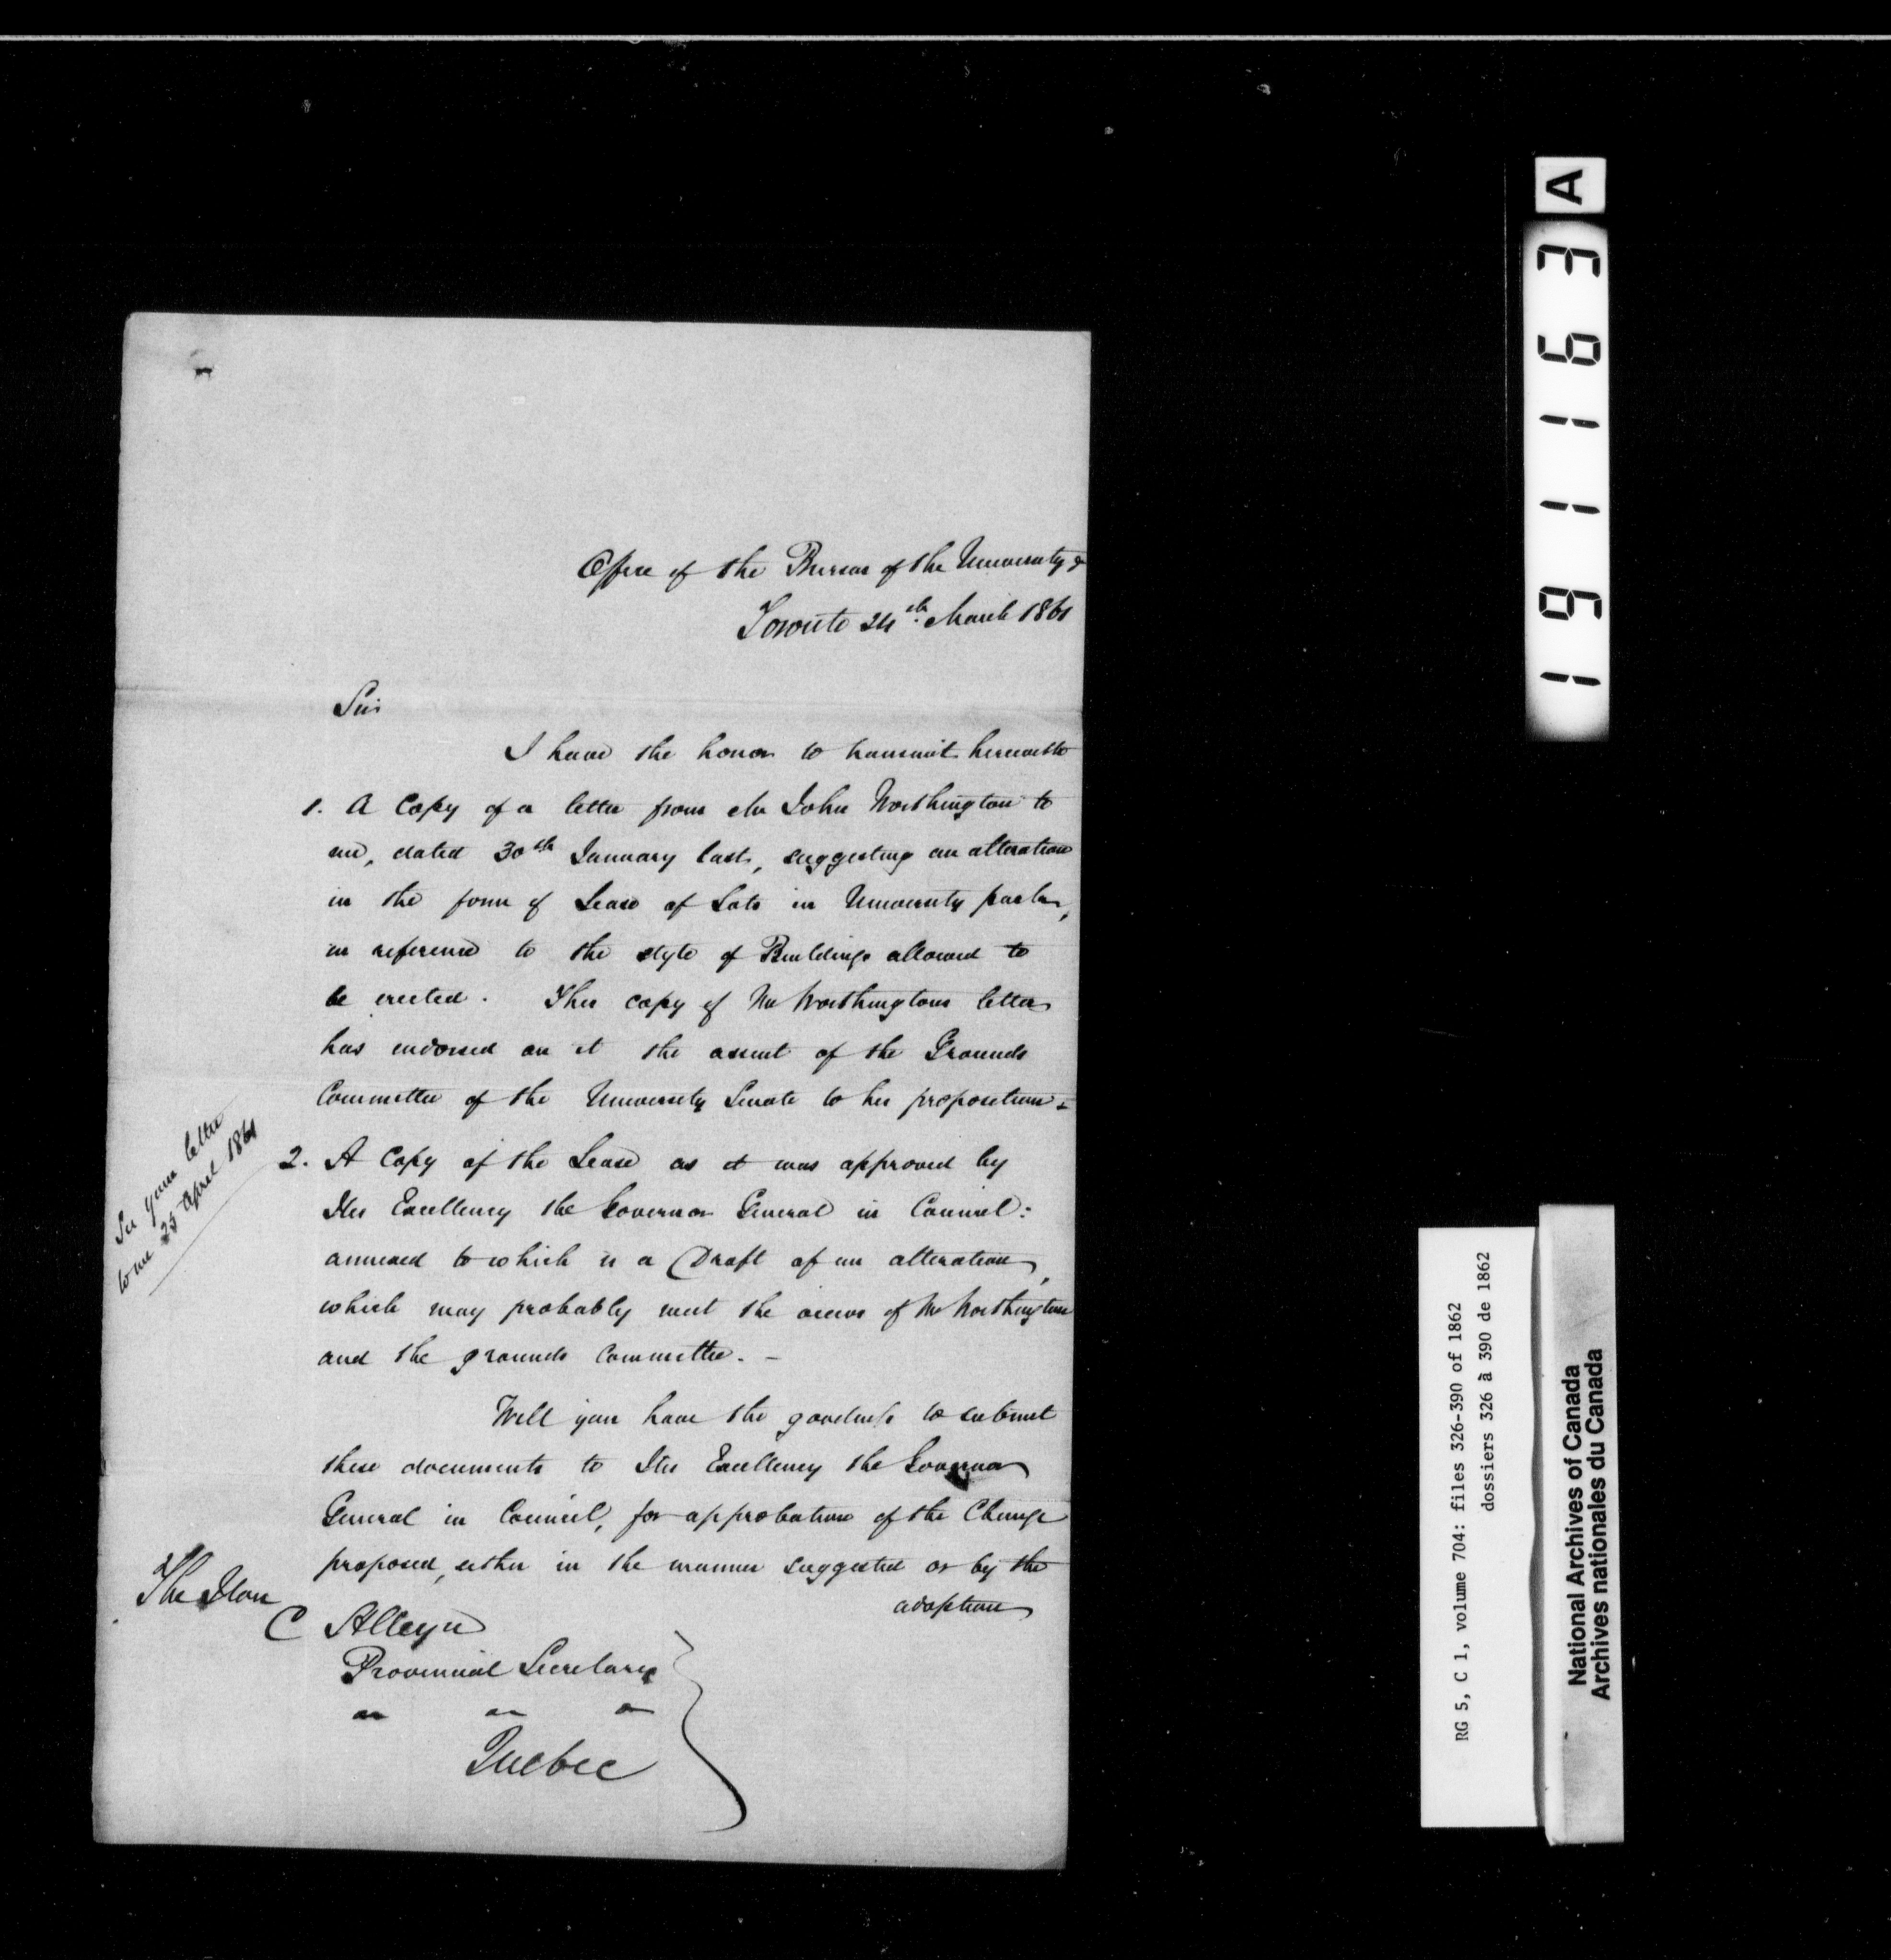 Office of the Bursar of the University &
Toronto 24th. March 1861
Sir
I have the honor to transmit herewith
1. A Copy of a letter from Mr John Worthington to
me, dated 30th January last, suggesting an alteration
in the form of Lease of Lots in University park,
in reference to the style of Buildings allowed to
be erected. This copy of Mr Worthingtons letter
has endorsed on it the assent of the Grounds
Committee of the University Senate to his proposition.
2. A Copy of the Lease as it was approved by
His Excellency the Governor General in Council:
annexed to which is a Draft of an alteration,
which may probably meet the views of Mr Worthington
and the grounds Committee. -
See your letter
to me 25 April 1861
Will you have the goodness to submit
these documents to His Excellency the Governor
General in Council, for approbation of the Change
proposed, either in the manner suggested or by the
adoption
The Hon
C Alleyn
Provincial Secretary
Quebec
191163 A
RG 5, C 1, volume 704: files 326-390 of 1862
dossiers 326 à 390 de 1862
National Archives of Canada
Archives nationales du Canada